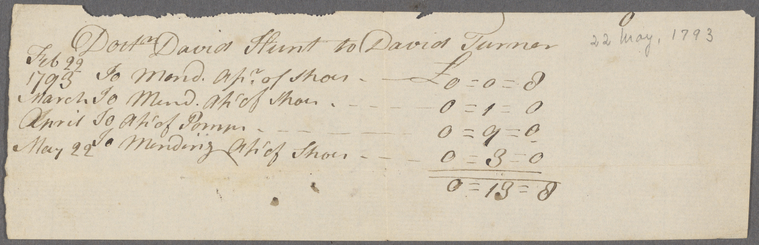 Doctr David Hunt to David Turner 22 May, 1793
Feb 22
1793 To Mend. A pr. of Shoes - £0=0=8
March To Mend. A pr of Shoes - 0=1=0
April To A pr of Pomps - 0=9=0
May 22 To Mending A pr of Shoes - 0=3=0
0=13=8